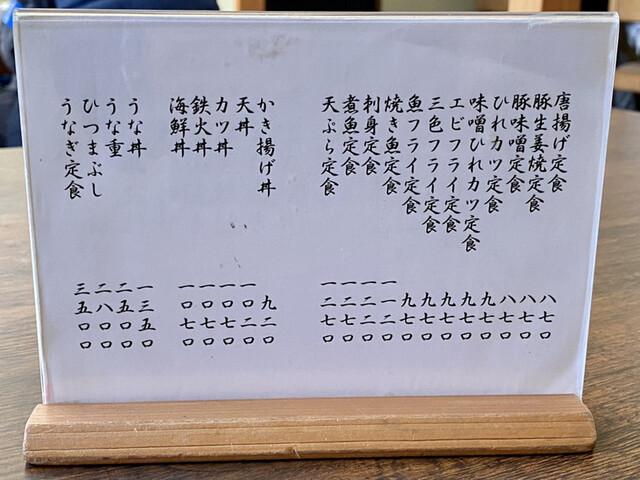 唐揚げ定食 八七〇
豚生姜焼定食 八七〇
豚味噌定食 八七〇
ひれカツ定食 九七〇
味噌ひれカツ定食 九七〇
エビフライ定食 九七〇
三色フライ定食 九七〇
魚フライ定食 九七〇
焼き魚定食 一一二〇
刺身定食 一二二〇
煮魚定食 一二七〇
天ぷら定食 一二七〇
かき揚げ丼 九二〇
天丼 一〇二〇
カツ丼 一〇七〇
鉄火丼 一〇七〇
海鮮丼 一〇七〇
うな丼 一三五〇
うな重 二五〇〇
ひつまぶし 二八〇〇
うなぎ定食 三五〇〇